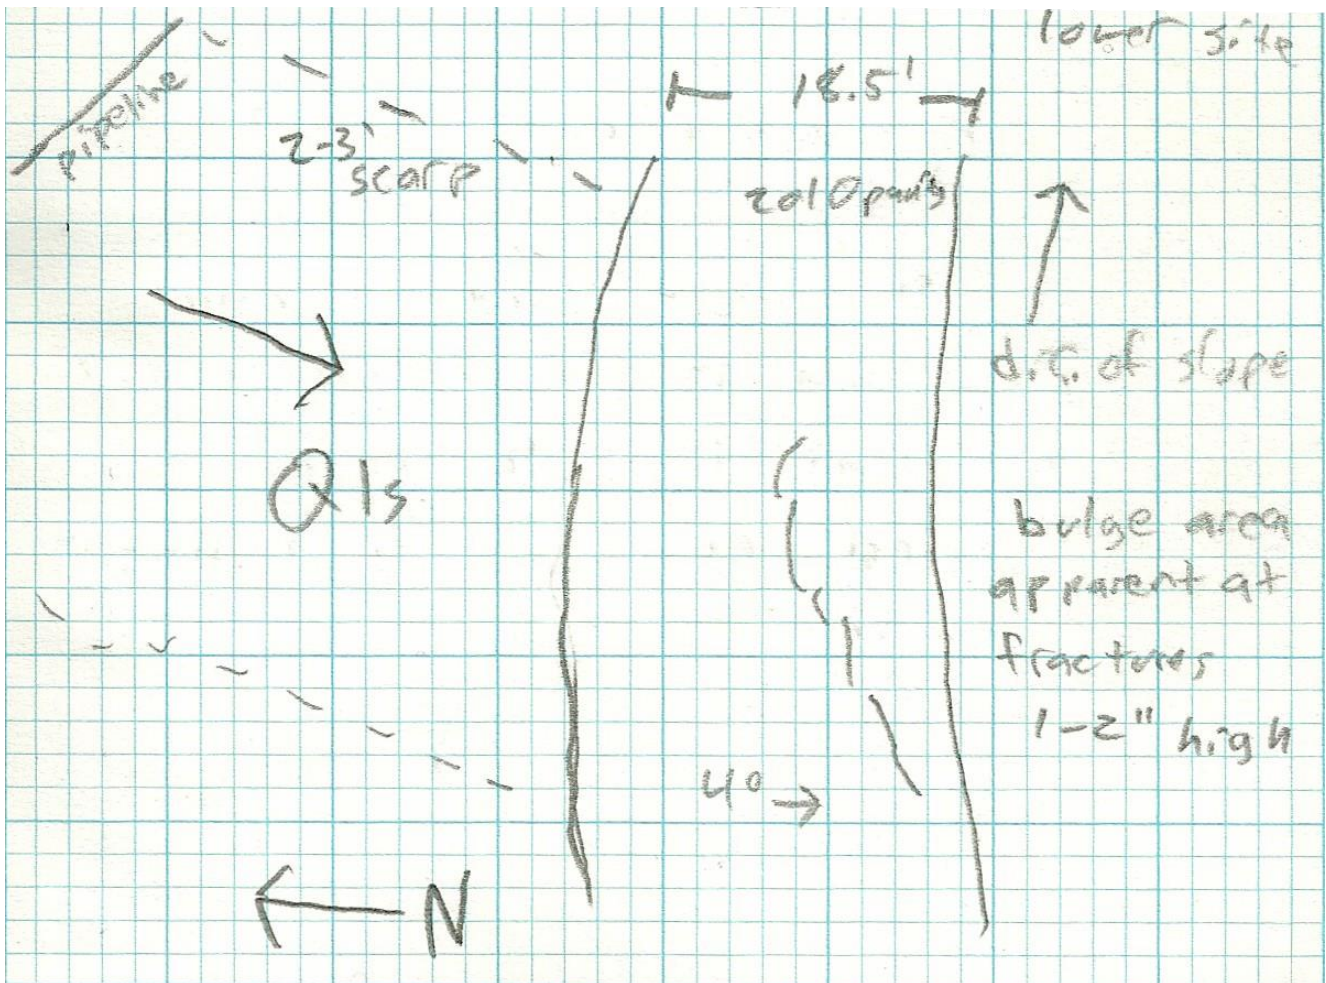 lower site
pipeline
18.5'
2-3'
scarp
2010 paving
dir. of slope
Qls
bulge area
apparent at
fractures
1-2" high
4° →
N